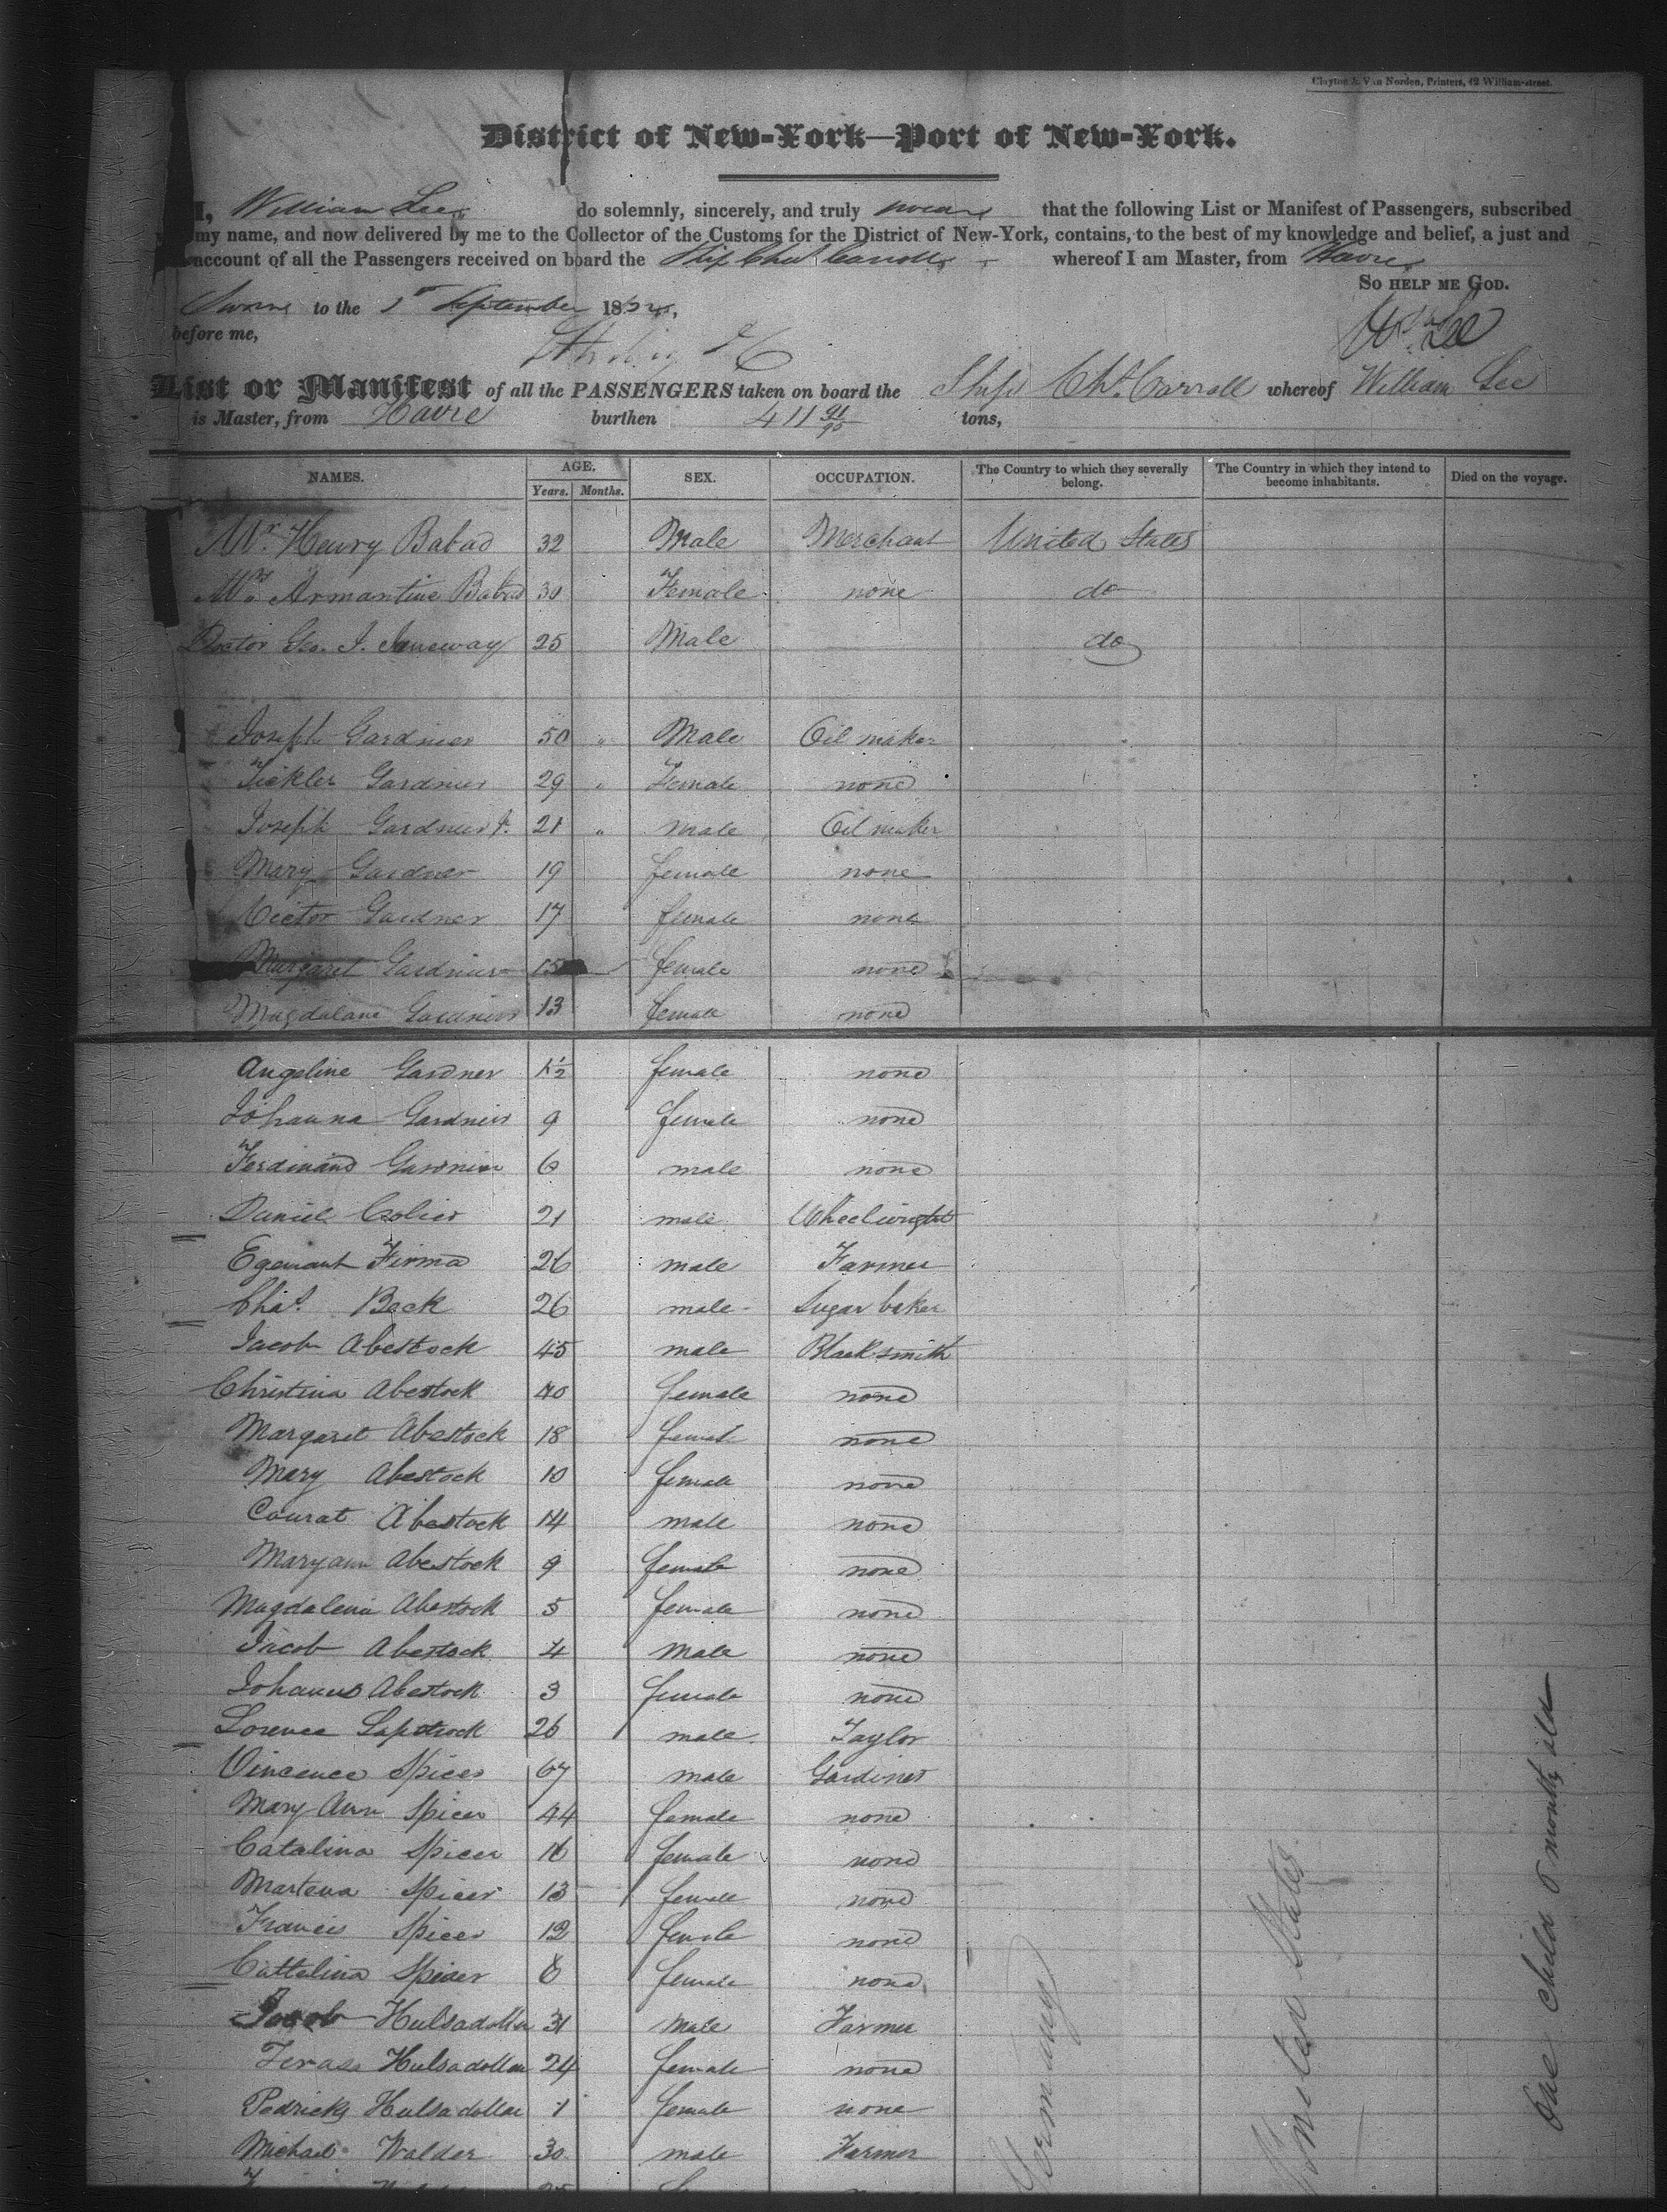 Clayton & Van Norden, Printers, 42 William-street.
District of New-York—Port of New-York.
I, William Lee do solemnly, sincerely, and truly swear that the following List or Manifest of Passengers, subscribed
my name, and now delivered by me to the Collector of the Customs for the District of New-York, contains, to the best of my knowledge and belief, a just and
account of all the Passengers received on board the Ship Chs. Carroll whereof I am Master, from Havre
So help me God.
Sworn to the 1st September 18
before me,
Wm. Lee
List or Manifest of all the PASSENGERS taken on board the Ship Chs. Carroll whereof William Lee
is Master, from Havre burthen 411 91/95 tons,
NAMES. AGE. Years. Months. SEX. OCCUPATION. The Country to which they severally belong. The Country in which they intend to become inhabitants. Died on the voyage.
Mr. Henry Babad 32 Male Merchant United States
Mrs. Armantine Babad 30 Female none do
Doctor Geo. J. Janeway 25 Male do
Joseph Gardnier 50 " Male Oil maker
Tickler Gardnier 29 " Female none
Joseph Gardnier Jr. 21 " male Oil maker
Mary Gardner 19 female none
Victor Gardner 17 female none
Margaret Gardnier 15 female none
Magdalane Gardnier 13 female none
Angeline Gardner female none
Johanna Gardnier 9 female none
Ferdinand Gardnier 6 male none
Daniel Colier 21 male Wheelwright
Egenant Firma 26 male Farmer
Chas. Back 26 male Sugar baker
Jacob Abestock 45 male Blacksmith
Christina Abestock 40 female none
Margaret Abestock 18 female none
Mary Abestock 10 female none
Courat Abestock 14 male none
Maryann Abestock 9 female none
Magdalena Abestock 5 female none
Jacob Abestock 4 Male none
Johanus Abestock 3 female none
Lorence Lapstrock 26 male Taylor
Vincence Spicer 67 male Gardiner
Mary Ann Spicer 44 female none
Catalina Spicer 16 female none
Martena Spicer 13 female none
Francis Spicer 12 female none
Cattalina Spicer 8 female none
Jacob Hulsadollar 31 Male Farmer
Teras Hulsadollar 24 female none
Pedricks Hulsadollar 1 female none
Michael Walder 30 male Farmer
Germany
United States
One child 8 months old